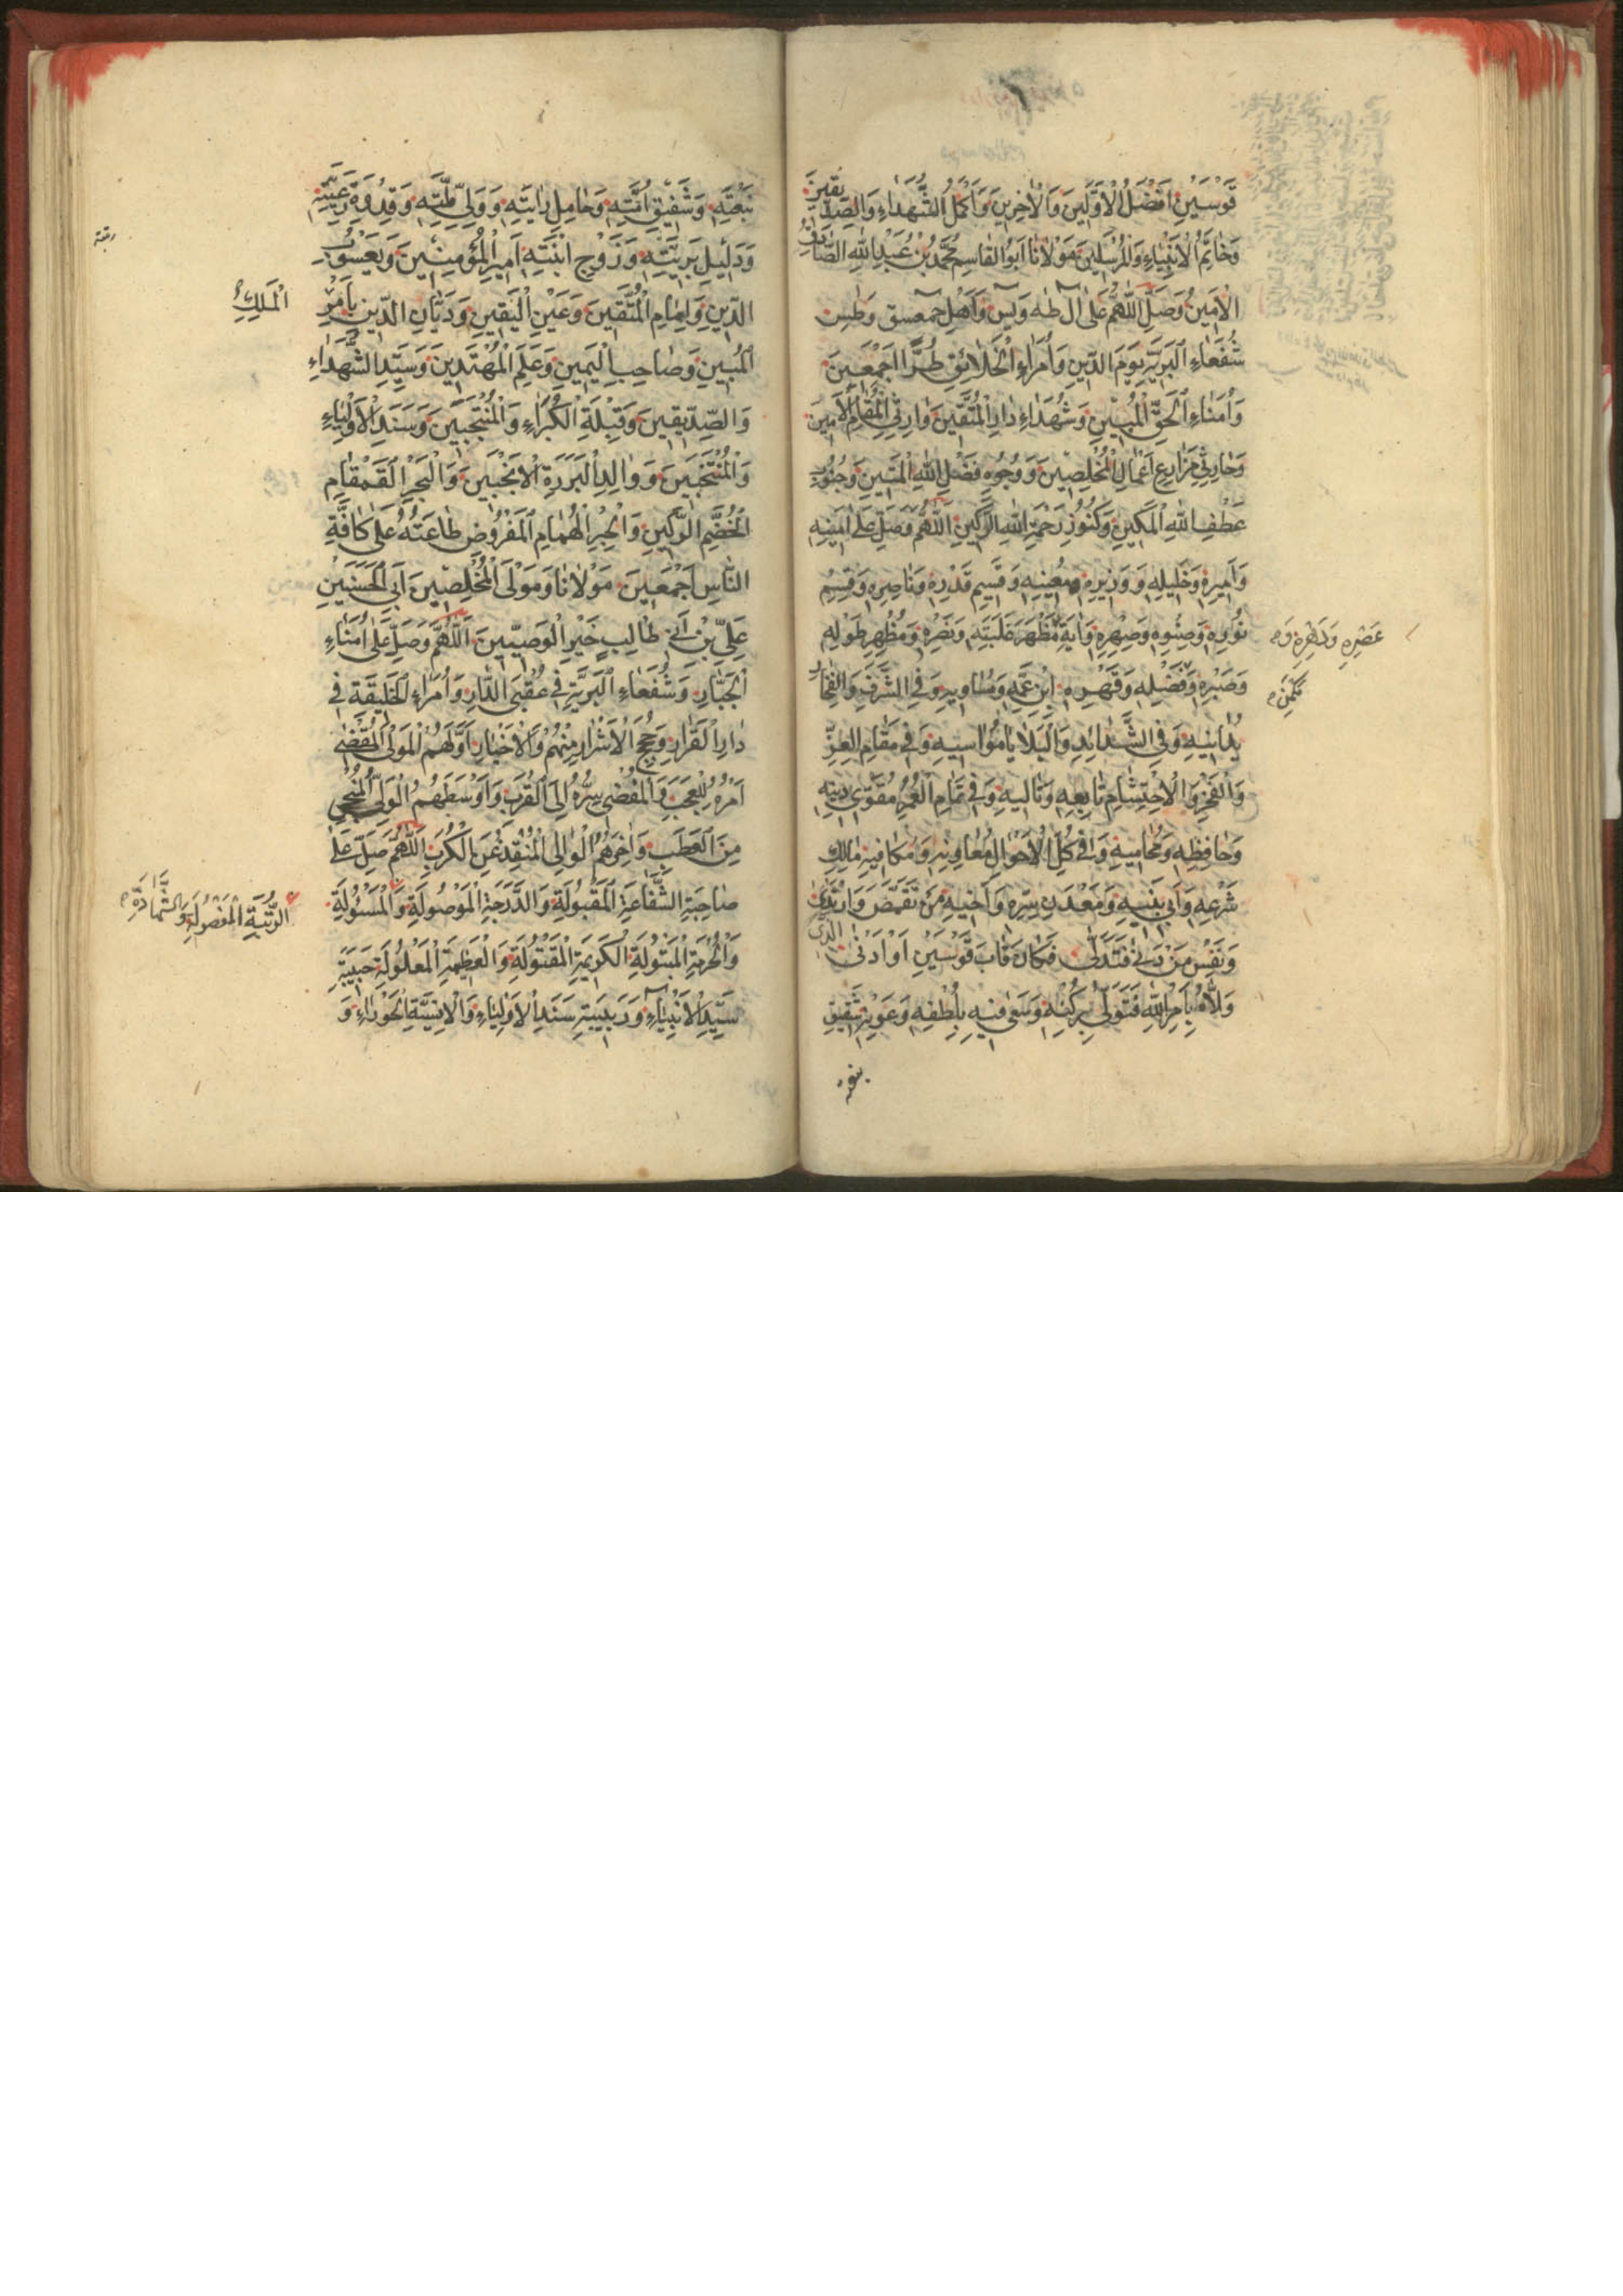 قَوْسَيْنِ اَفْضَلُ الْاَوَّلِينَ وَالْاٰخِرِينَ وَاَكْمَلُ الشُّهَدَاءِ وَالصِّدِّيقِينَ
وَخَاتَمُ الْاَنْبِيَاءِ وَالْمُرْسَلِينَ مَوْلَانَا اَبُو الْقَاسِمِ مُحَمَّدُ بْنُ عَبْدِ اللهِ الصَّادِقُ
الْاَمِينُ وَصَلِّ اللّٰهُمَّ عَلَى اٰلِ طٰهٰ وَيٰسٓ وَاَهْلِ حٰمٓعٓسٓقٓ وَطٰسٓ
شُفَعَاءِ الْبَرِيَّةِ يَوْمَ الدِّينِ وَاُمَرَاءِ الْخَلَائِقِ طُرًّا اَجْمَعِينَ
وَاُمَنَاءِ الْحَقِّ الْمُبِينِ وَشُهَدَاءِ دَارِ الْمُتَّقِينَ وَارِثِي الْمَقَامِ الْاَمِينِ
وَحَارِثِي مَزَارِعِ اَعْمَالِ الْمُخْلِصِينَ وَوُجُوهِ فَضْلِ اللهِ الْمَتِينِ وَجُنُوبِ
عَطْفِ اللهِ الْمَكِينِ وَكُنُوزِ رَحْمَةِ اللهِ الرَّكِينِ اَللّٰهُمَّ وَصَلِّ عَلَى اَمِينِهِ
وَاَمِيرِهِ وَخَلِيلِهِ وَوَزِيرِهِ وَمُعِينِهِ وَقَسِيمِ قَدْرِهِ وَنَاصِرِهِ وَقَسِيمِ
نُورِهِ وَصِنْوِهِ وَصِهْرِهِ وَاٰيَةِ مَظْهَرِ غَلَبَتِهِ وَنَصْرِهِ وَمُظْهِرِ طَوْلِهِ
عَصْرِهِ وَدَهْرِهِ وَ
وَصَبْرِهِ وَفَضْلِهِ وَقَهْرِهِ ابْنِ عَمِّهِ وَمُسَاوِيهِ وَفِي الشَّرَفِ وَالْفَخَارِ
يُدَانِيهِ وَفِي الشَّدَائِدِ وَالْبَلَايَا مُوَاسِيهِ وَفِي مَقَامِ الْعِزِّ
وَالْفَخْرِ وَالْاِحْتِشَامِ تَابِعِهِ وَتَالِيهِ وَفِي تَمَامِ الْعُمْرِ مُقَوِّي دِينِهِ
وَحَافِظِهِ وَمُحَامِيهِ وَفِي كُلِّ الْاَحْوَالِ مُعَاوِنِهِ وَمُكَافِيهِ مَالِكِ
شَرْعِهِ وَاَبِي بَنِيهِ وَمَعْدَنِ سِرِّهِ وَاَخِيهِ مَنْ تَقَمَّصَ وَارْتَدٰى
وَنَفْسِ مَنْ دَنٰى فَتَدَلّٰى فَكَانَ قَابَ قَوْسَيْنِ اَوْ اَدْنٰى الَّذِي
وَلَّاهُ بِاَمْرِ اللهِ فَتَوَلّٰى بِرُكْنِهِ وَسَعٰى فِيهِ بِلُطْفِهِ وَعَوْنِهِ شَقِيقِ
نبعته
نَبْعَتِهِ وَشَفِيقِ اُمَّتِهِ وَحَامِلِ رَايَتِهِ وَوَلِيِّ مِلَّتِهِ وَقِدْوَةِ رَعِيَّتِهِ
وَدَلِيلِ بَرِيَّتِهِ وَزَوْجِ ابْنَتِهِ اَمِيرِ الْمُؤْمِنِينَ وَيَعْسُوبِ
الدِّينِ وَاِمَامِ الْمُتَّقِينَ وَعَيْنِ الْيَقِينِ وَدَيَّانِ الدِّينِ بِاَمْرِ
الْمَلِكِ
الْمُبِينِ وَصَاحِبِ الْيَمِينِ وَعَلَمِ الْمُهْتَدِينَ وَسَيِّدِ الشُّهَدَاءِ
وَالصِّدِّيقِينَ وَقِبْلَةِ الْكُبَرَاءِ وَالْمُنْتَجَبِينَ وَسَنَدِ الْاَوْلِيَاءِ
وَالْمُنْتَخَبِينَ وَوَالِدِ الْبَرَرَةِ الْاَنْجَبِينَ وَالْبَحْرِ الْقَمْقَامِ
الْخِضَمِّ الرَّكِينِ وَالْحِبْرِ الْهُمَامِ الْمَفْرُوضِ طَاعَتُهُ عَلَى كَافَّةِ
النَّاسِ اَجْمَعِينَ مَوْلَانَا وَمَوْلَى الْمُخْلِصِينَ اَبِي الْحَسَنَيْنِ
عَلِيِّ بْنِ اَبِي طَالِبٍ خَيْرِ الْوَصِيِّينَ اَللّٰهُمَّ وَصَلِّ عَلَى اُمَنَاءِ
الْجَبَّارِ وَشُفَعَاءِ الْبَرِيَّةِ فِي عُقْبَى الدَّارِ وَاُمَرَاءِ الْخَلِيقَةِ فِي
دَارِ الْقَرَارِ وَحُجَجِ الْاَشْرَارِ مِنْهُمْ وَالْاَخْيَارِ اَوَّلُهُمُ الْمَوْلَى الْمُقْضٰى
اَمْرُهُ لِلْعَجَبِ وَالْمُفْضٰى سِرُّهُ اِلَى الْقُرَبِ وَاَوْسَطُهُمُ الْوَلِيُّ الْمُنْجِي
مِنَ الْعَطَبِ وَاٰخِرُهُمُ الْوَالِي الْمُنْقِذُ عَنِ الْكُرَبِ اَللّٰهُمَّ صَلِّ عَلَى
صَاحِبَةِ الشَّفَاعَةِ الْمَقْبُولَةِ وَالدَّرَجَةِ الْمَوْصُولَةِ وَالْمَسْئُولَةِ
وَالْحُرْمَةِ الْمَبْتُولَةِ الْكَرِيمَةِ الْمَقْتُولَةِ وَالْعَظِيمَةِ الْمَعْلُولَةِ حَبِيبَةِ
سَيِّدِ الْاَنْبِيَاءِ وَرَبِيبَةِ سَنَدِ الْاَوْلِيَاءِ وَالْاِنْسِيَّةِ الْحَوْرَاءِ وَ